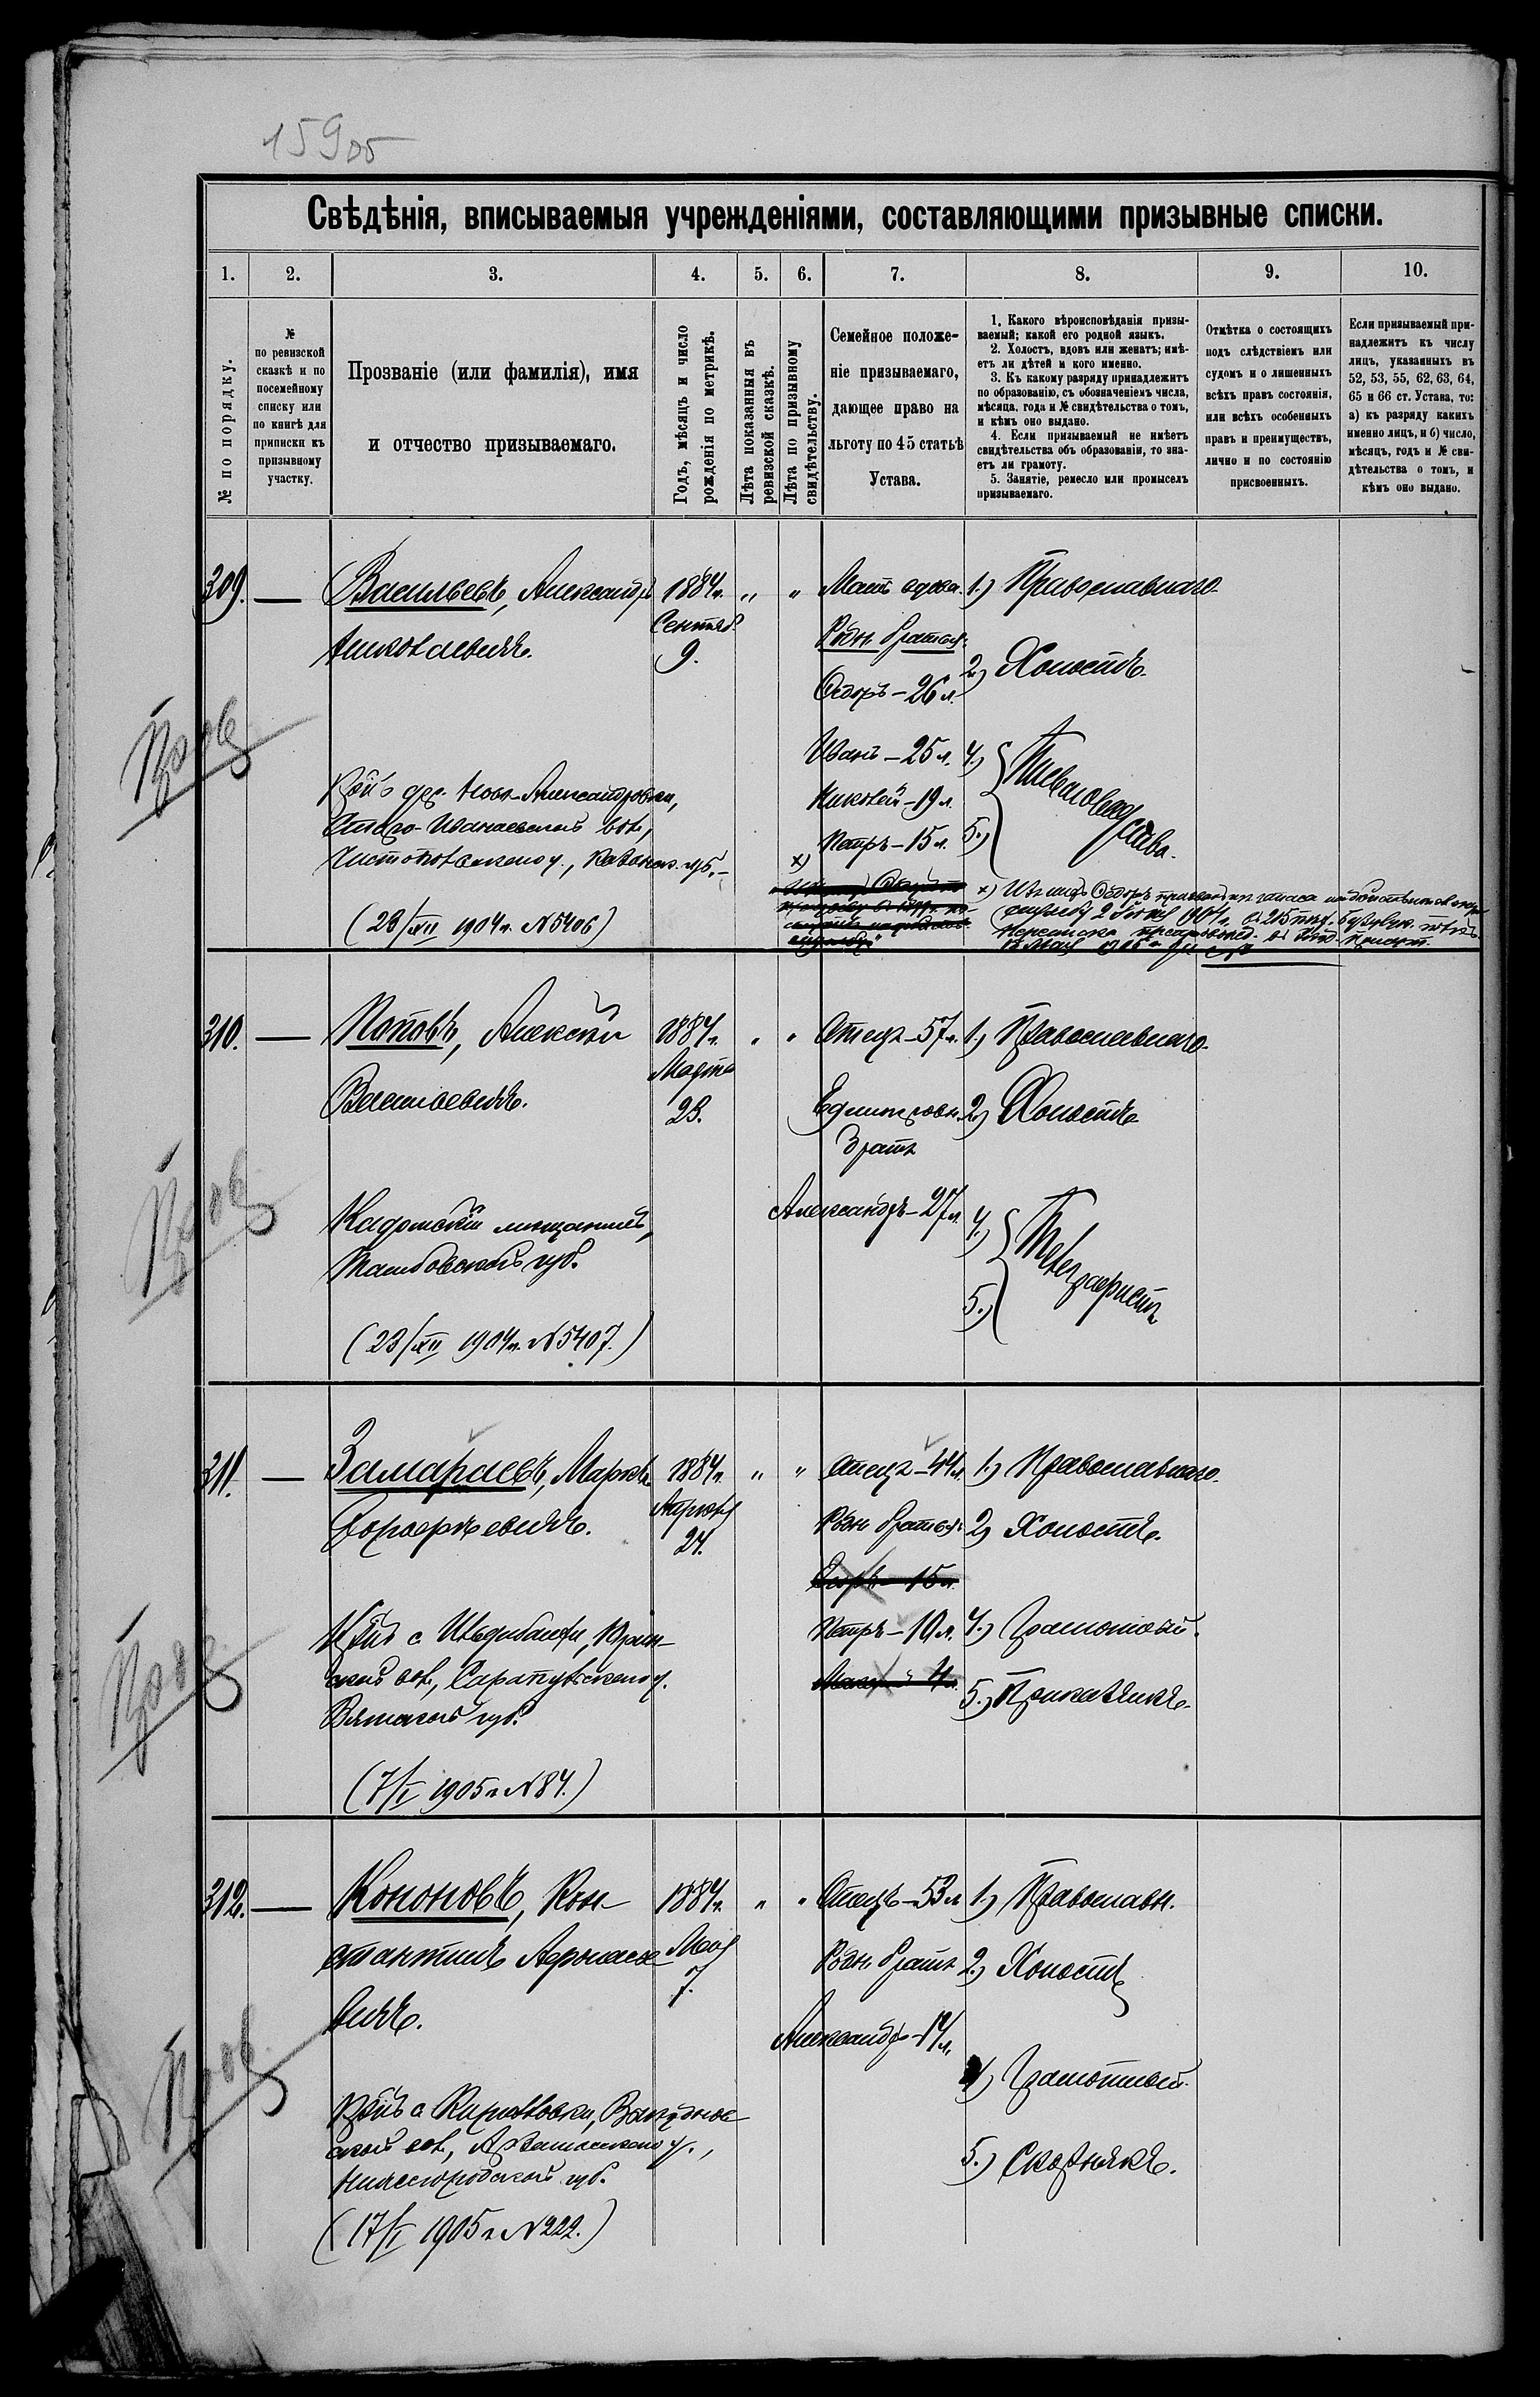 159об
Свѣдѣнія, вписываемыя учрежденіями, составляющими призывные списки.
1. 2. 3. 4. 5. 6. 7. 8. 9. 10.
№ по порядку.
№
по ревизской
сказкѣ и по
посемейному
списку или
по книгѣ для
приписки къ
призывному
участку.
Прозваніе (или фамилія), имя
и отчество призываемаго.
Годъ, мѣсяцъ и число
рожденія по метрикѣ.
Лѣта показанныя въ
ревизской сказкѣ.
Лѣта по призывному
свидѣтельству.
Семейное положе-
ніе призываемаго,
дающее право на
льготу по 45 статьѣ
Устава.
1. Какого вѣроисповѣданія призы-
ваемый; какой его родной языкъ.
2. Холостъ, вдовъ или женатъ; имѣ-
етъ ли дѣтей и кого именно.
3. Къ какому разряду принадлежитъ
по образованію, съ обозначеніемъ числа,
мѣсяца, года и № свидѣтельства о томъ,
и кѣмъ оно выдано.
4. Если призываемый не имѣетъ
свидѣтельства объ образованіи, то зна-
етъ ли грамоту.
5. Занятіе, ремесло или промыселъ
призываемаго.
Отмѣтка о состоящихъ
подъ слѣдствіемъ или
судомъ и о лишенныхъ
всѣхъ правъ состоянія,
или всѣхъ особенныхъ
правъ и преимуществъ,
лично и по состоянію
присвоенныхъ.
Если призываемый при-
надлежитъ къ числу
лицъ, указанныхъ въ
52, 53, 55, 62, 63, 64,
65 и 66 ст. Устава, то:
а) къ разряду какихъ
именно лицъ, и б) число,
мѣсяцъ, годъ и № сви-
дѣтельства о томъ, и
кѣмъ оно выдано.
309. — Васильевъ, Александръ
Николаевичъ.
1884 г.
Сентяб.
9.
" "
Мать вдова.
Родн. братья:
Ѳедоръ — 26 л.
Иванъ — 25 л.
Николай — 19 л.
Петръ — 15 л.
х)
1.) Православнаго
2.) Холостъ.
4.)
5.)
Кр-нъ дер. Ново-Александровки,
Старо-Иванаевской вол.,
Чистопольскаго у., Казанск. губ. —
(23/XII 1904 г. № 5406)
х) Ѳедоръ изъ запаса
службу 2 1904 г. 215 Бузулук. полкъ.
1905 г.
310. — Поповъ, Алексѣй
Васильевичъ.
1884 г.
Марта
23.
" "
Отецъ — 57 л.
Единкровн.
Братъ
Александръ — 27 л.
1.) Православнаго
2.) Холостъ
4.)
5.)
Телеграфистъ
Кадомскій мѣщанинъ,
Тамбовской губ.
(23/XII 1904 г. № 5407.)
311. — Замараевъ, Маркелъ
1884 г.
Апрѣля
24.
" "
Отецъ — 44 л.
Родн. братья:
Егоръ — 15 л.
Петръ — 10 л.
1.) Православнаго.
2.) Холостъ.
4.) Грамотный.
5.) Приказчикъ.
Кр-нъ с.
ской вол., Сарапульскаго у.
Вятской губ.
(7/I 1905 г. № 84.)
312. — Кононовъ, Кон-
стантинъ Афонасье-
вичъ.
1884 г.
Мая
7.
" "
Отецъ — 53 л.
Родн. братъ
Александръ — 14 л.
1.) Православн.
2.) Холостъ
4.) Грамотный
5.) Скорнякъ.
Кр-нъ с. Кирилловки,
ской вол., Арзамасскаго у.,
Нижегородской губ.
(17/I 1905 г. № 222.)